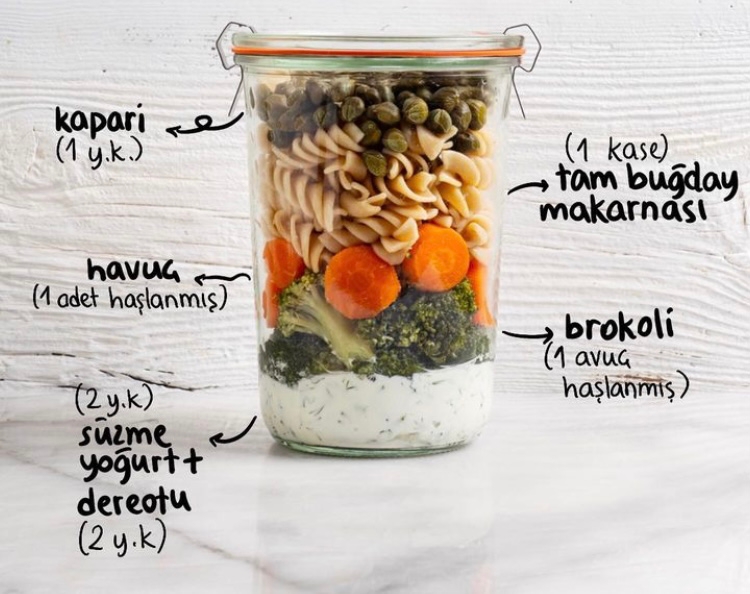 kapari
(1 y.k.)
(1 kase)
tam buğday
makarnası
havuç
(1 adet haşlanmış)
brokoli
(1 avuç
haşlanmış)
(2 y.k)
süzme
yoğurt+
dereotu
(2 y.k)